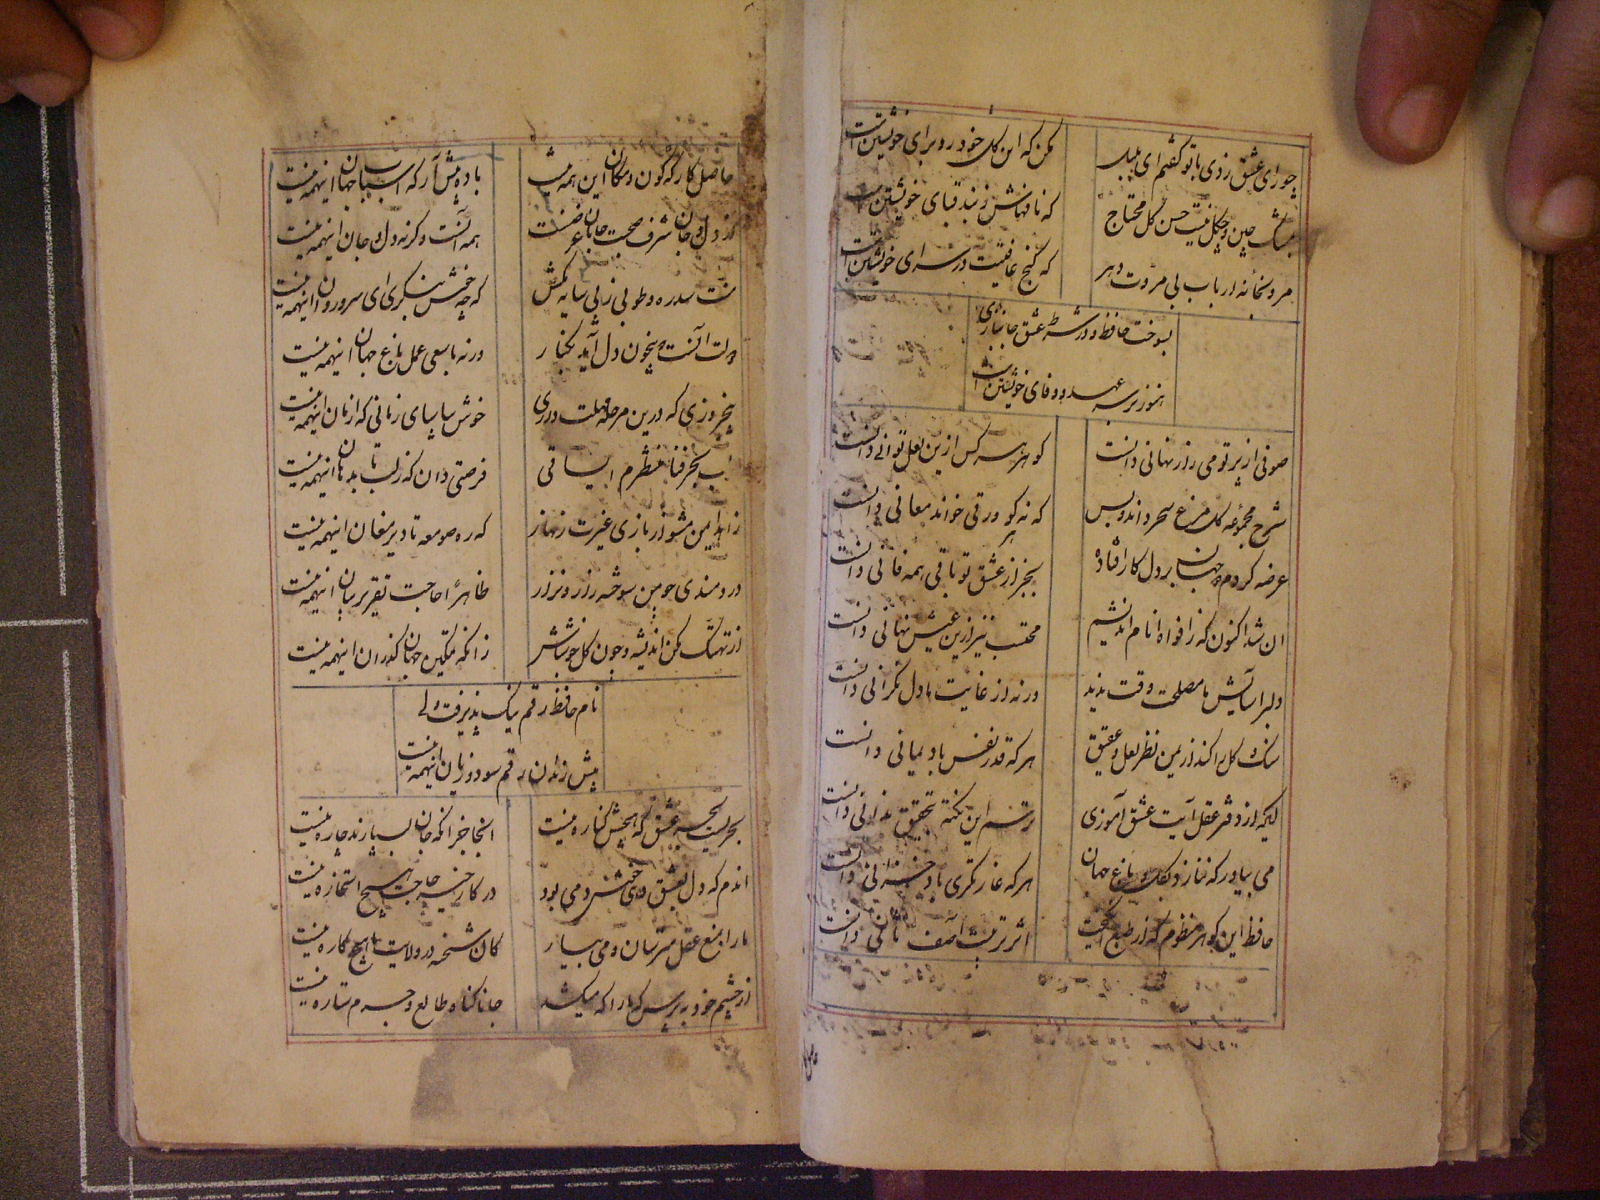 چو رای عشق زدی با تو گفتم ای بلبل
مکن که این گل خودرو برای خویشتن است
بمشک چین و چگل نیست حسن گل محتاج
که نافهاش ز بند قبای خویشتن است
مرو بخانه ارباب بی مروت دهر
که گنج عافیتت در سرای خویشتن است
بسوخت حافظ و در شرط عشق جانبازی
هنوز بر سر عهد و وفای خویشتن است
صوفی از پرتو می راز نهانی دانست
گوهر هر کس ازین لعل توانی دانست
شرح مجموعه گل مرغ سحر داند و بس
که نه هر کو ورقی خواند معانی دانست
عرضه کردم دو جهان بر دل کار افتاده
بجز از عشق تو باقی همه فانی دانست
ان شد اکنون که ز افواه انام اندیشم
محتسب نیز ازین عیش نهانی دانست
دلبر اسایش ما مصلحت وقت ندید
ورنه از غایت ما دل نگرانی دانست
سنگ و گل را کند از یمن نظر لعل و عقیق
هر که قدر نفس باد یمانی دانست
ایکه از دفتر عقل آیت عشق آموزی
ترسم این نکته تحقیق ندانی دانست
می بیاور که ننازد بگل باغ جهان
هر که غارتگری باد خزانی دانست
حافظ این گوهر منظوم که از طبع انگیخت
اثر تربیت آصف ثانی دانست
حاصل کارگه کون و مکان این همه نیست
باده پیش آر که اسباب جهان اینهمه نیست
از دل و جان شرف صحبت جانان غرضست
همه آنست وگرنه دل و جان اینهمه نیست
منت سدره و طوبی ز پی سایه مکش
که چو خوش بنگری ای سرو روان اینهمه نیست
دولت آنست که بیخون دل آید بکنار
ورنه با سعی عمل باغ جهان اینهمه نیست
پنجروزی که درین مرحله مهلت داری
خوش بیاسای زمانی که زمان اینهمه نیست
بر لب بحر فنا منتظریم ای ساقی
فرصتی دان که ز لب تا بدهان اینهمه نیست
زاهد ایمن مشو از بازی غیرت زنهار
که ره صومعه تا دیر مغان اینهمه نیست
دردمندی چو من سوخته زار و نزار
ظاهرا حاجت تقریر بیان اینهمه نیست
از تهتک مکن اندیشه و چون گل خوش باش
زانکه تمکین جهان گذران اینهمه نیست
نام حافظ رقم نیک پذیرفت ولی
پیش رندان رقم سود و زیان اینهمه نیست
بحریست بحر عشق که هیچش کناره نیست
انجا جز انکه جان بسپارند چاره نیست
اندم که دل بعشق دهی خوش دمی بود
در کار خیر حاجت هیچ استخاره نیست
ما را بمنع عقل مترسان و می بیار
کان شحنه در ولایت ما هیچ کاره نیست
از چشم خود بپرس که ما را که میکشد
جانا گناه طالع و جرم ستاره نیست